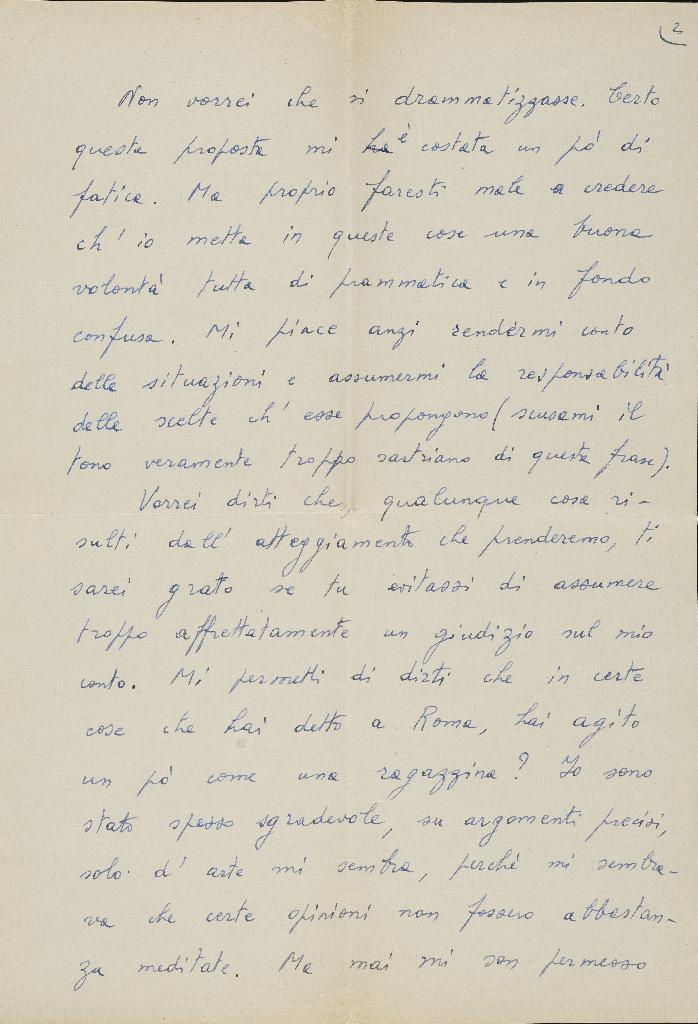 2
Non vorrei che si drammatizzasse. Certo
questa proposta mi ha è costata un pò di
fatica. Ma proprio faresti male a credere
ch' io metta in queste cose una buona
volontà tutta di prammatica e in fondo
confusa. Mi piace anzi rendermi conto
delle situazioni e assumermi la responsabilità
delle scelte ch' esse propongono (scusami il
tono veramente troppo sartriano di questa frase).
Vorrei dirti che, qualunque cosa ri-
sulti dall' atteggiamento che prenderemo, ti
sarei grato se tu evitassi di assumere
troppo affrettatamente un giudizio sul mio
conto. Mi permetti di dirti che in certe
cose che hai detto a Roma, hai agito
un pò come una ragazzina? Io sono
stato spesso sgradevole, su argomenti precisi,
solo d' arte mi sembra, perchè mi sembra-
va che certe opinioni non fossero abbastan-
za meditate. Ma mai mi son permesso